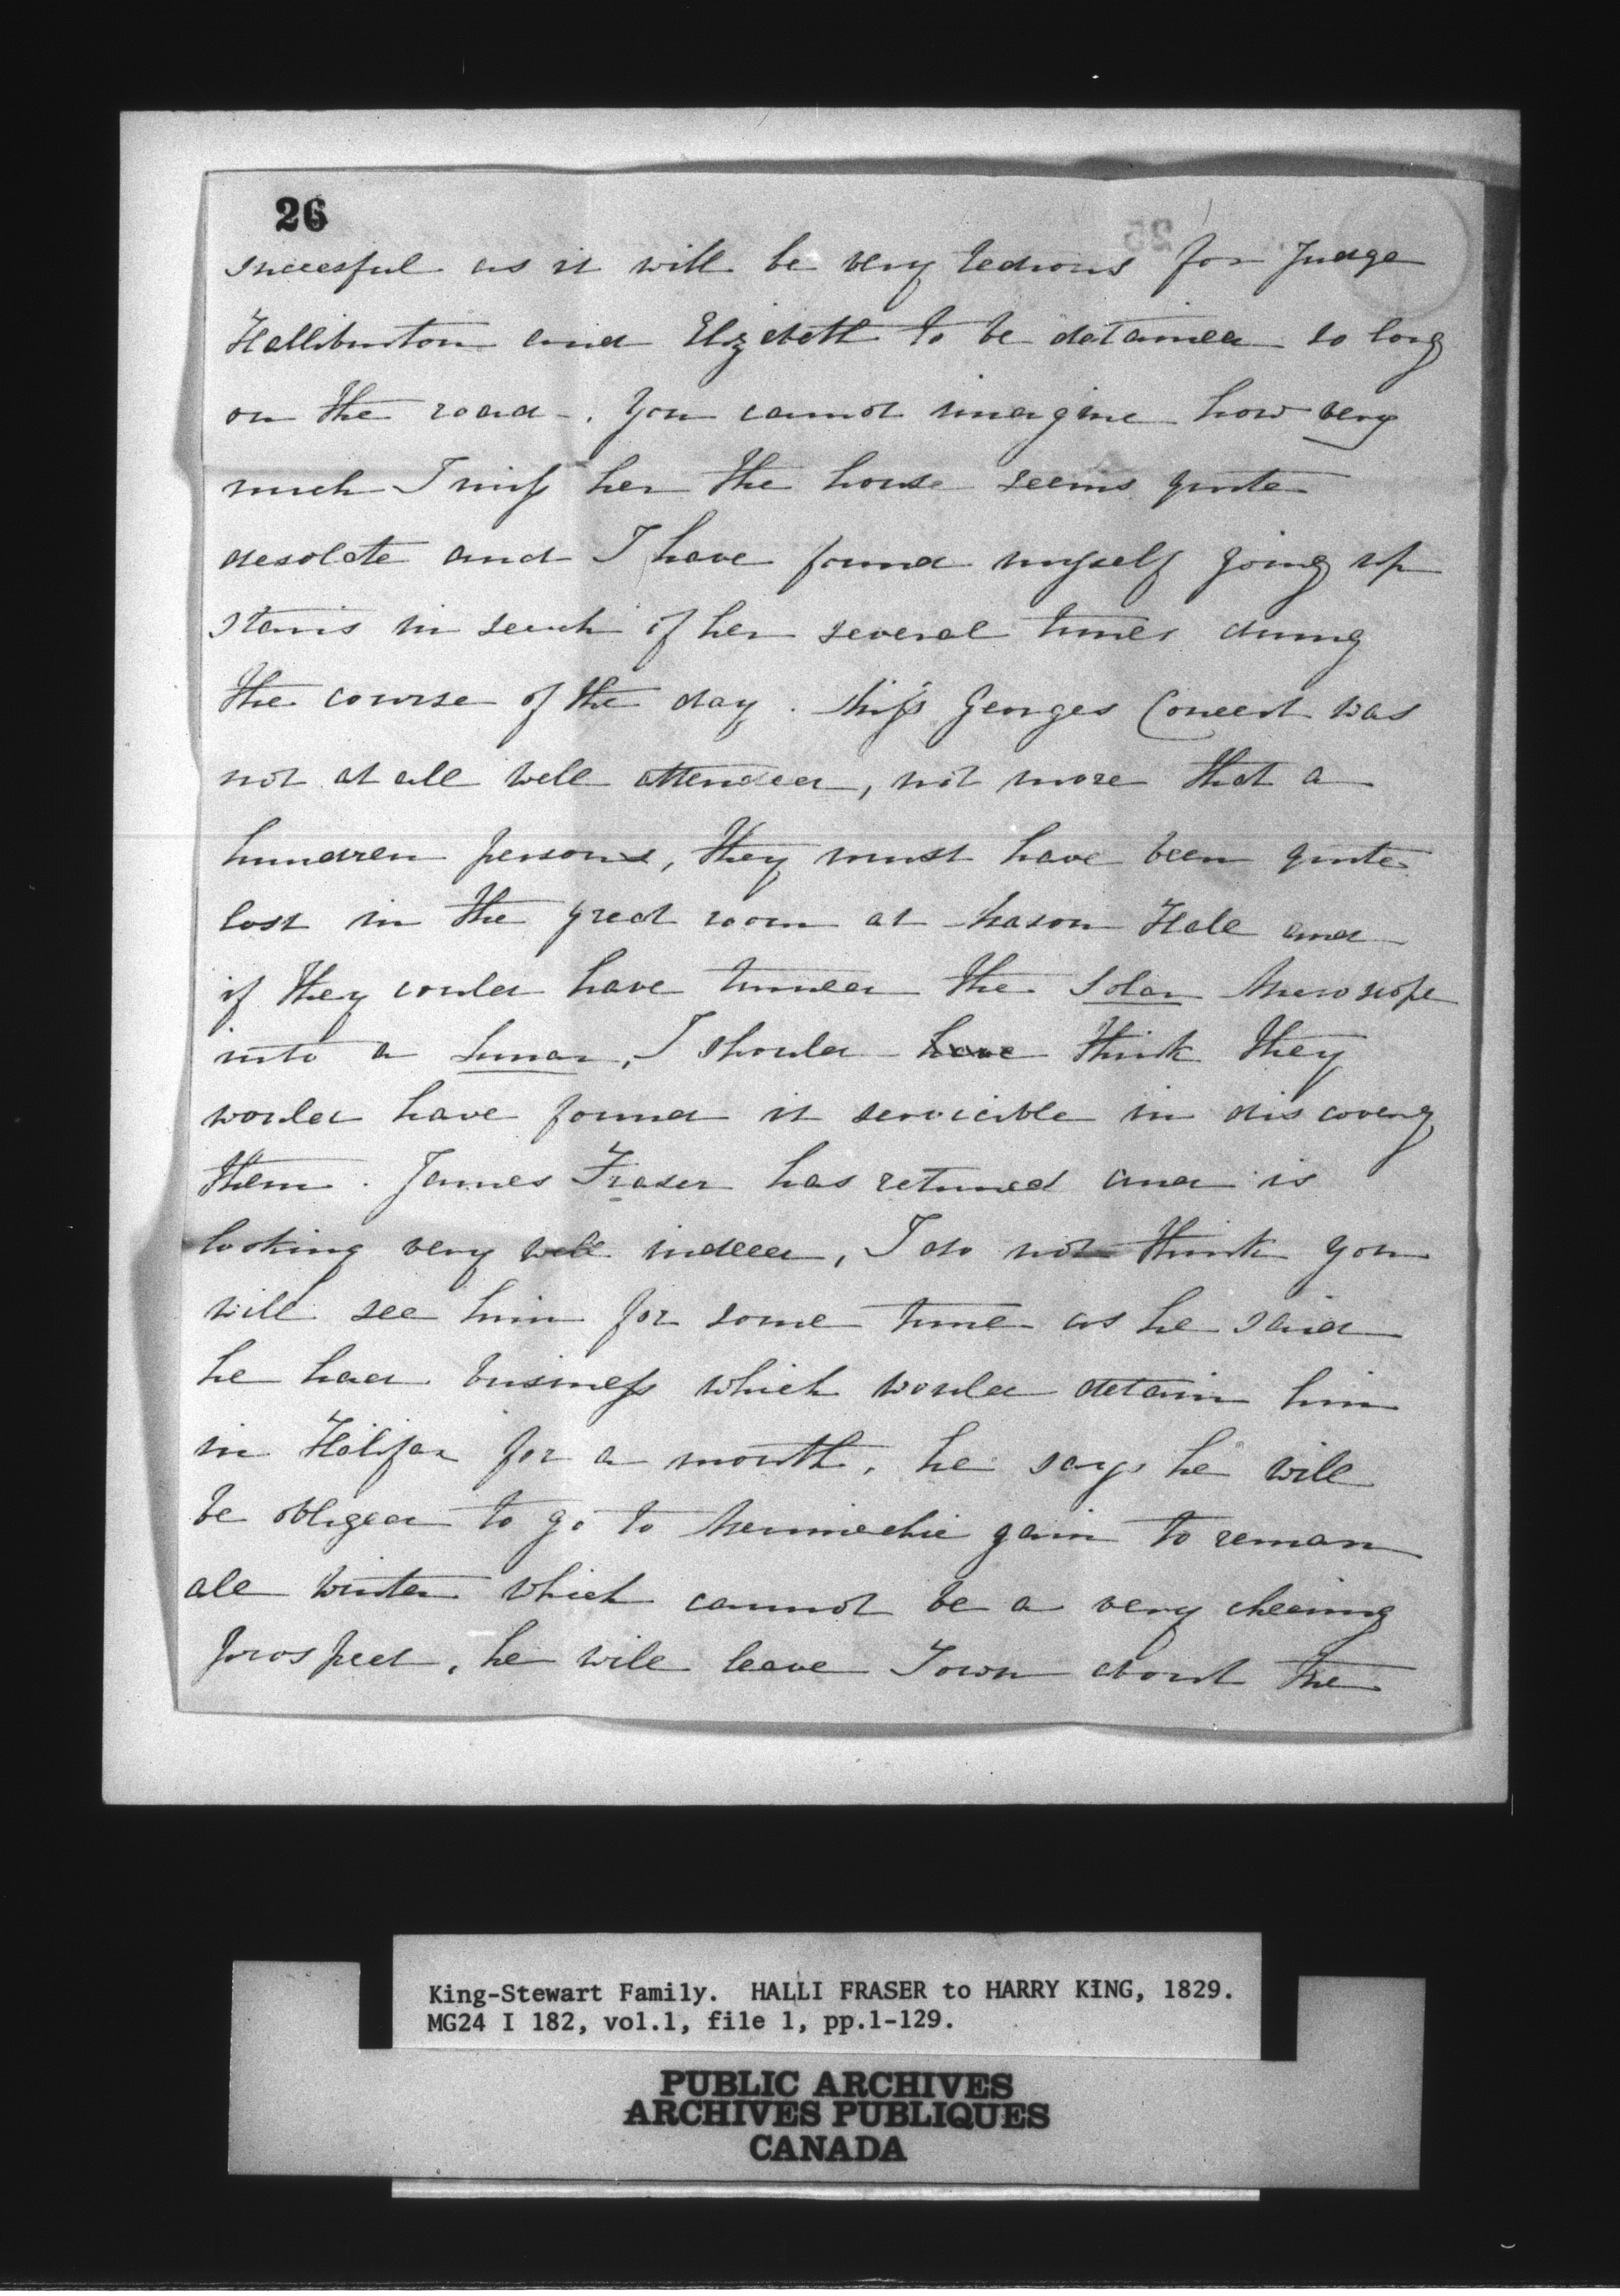 26
succesful as it will be very tedious for Judge
Halliburton and Elizabeth to be detained so long
on the road. You cannot imagine how very
much I miss her the house seems quite
desolate and I have found myself going up
stairs in search of her several times during
the course of the day. Miss Georges Concert was
not at all well attended, not more that a
hundred persons, they must have been quite
lost in the great room at Mason Hall and
if they could have turned the Solar Microscope
into a Lunar, I should have think they
would have found it servicible in discovering
them. James Fraser has returned and is
looking very well indeed, I do not think you
will see him for some time as he said
he had business which would detain him
in Halifax for a month, he says he will
be obliged to go to gain to remain
all winter which cannot be a very cheering
prospect, he will leave Town about the
King-Stewart Family. HALLI FRASER to HARRY KING, 1829.
MG24 I 182, vol.1, file 1, pp.1-129.
PUBLIC ARCHIVES
ARCHIVES PUBLIQUES
CANADA